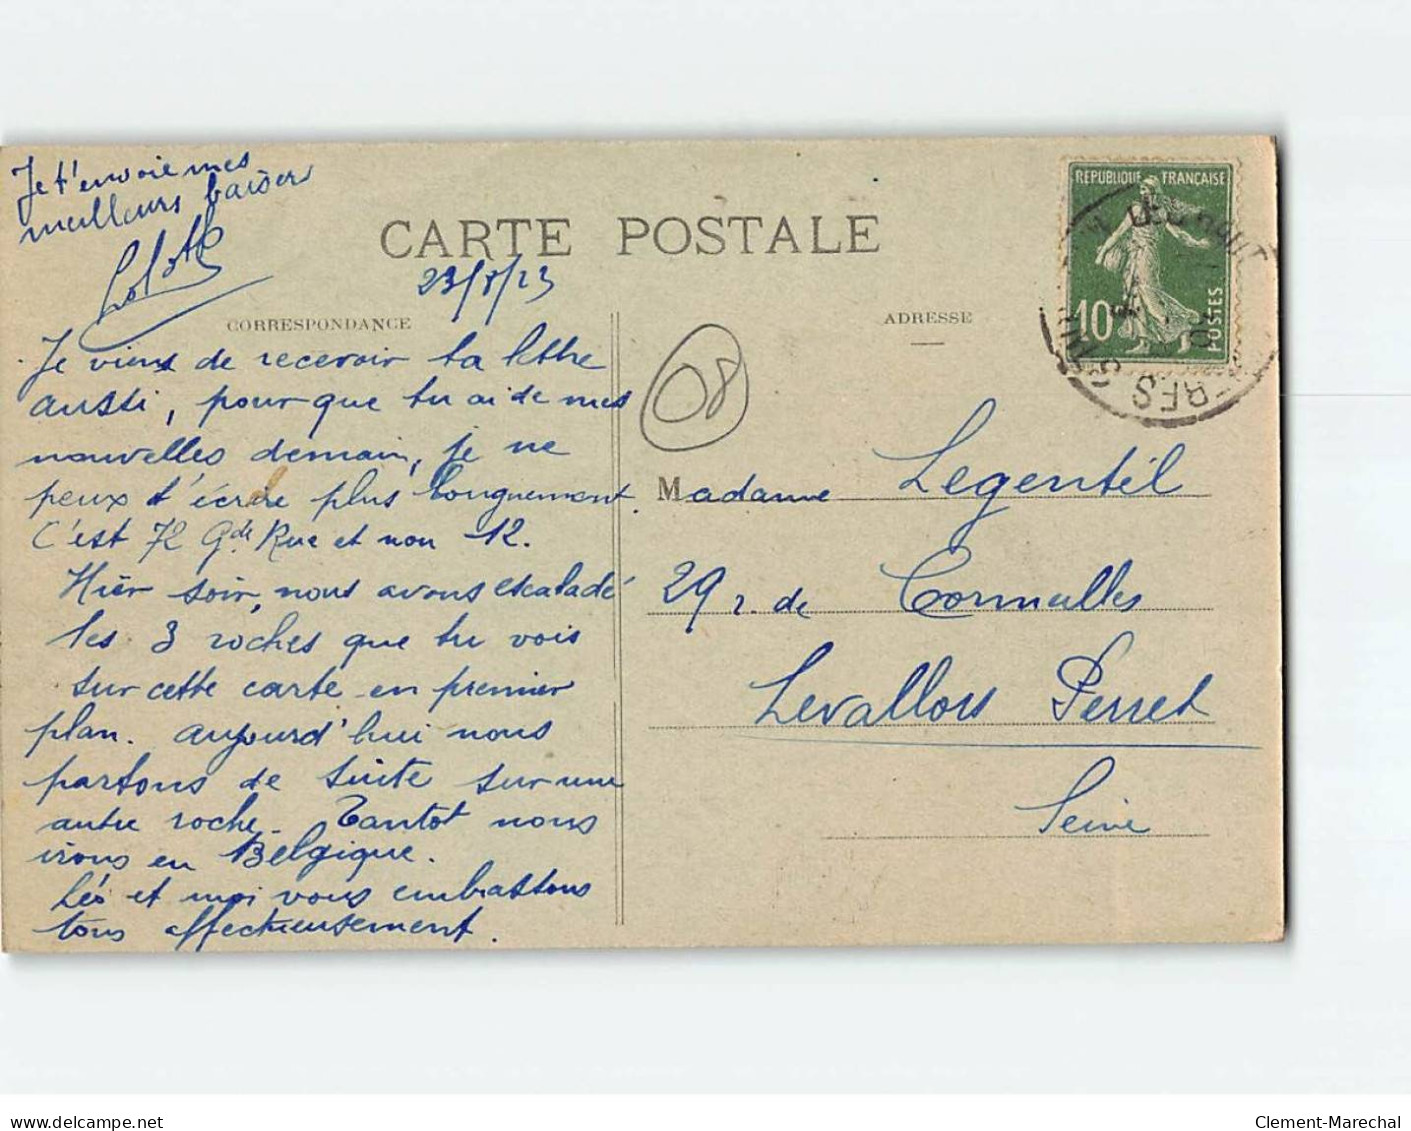 Je t'envoie mes
meilleurs baisers
CARTE POSTALE
23/8/23
CORRESPONDANCE
ADRESSE
RÉPUBLIQUE FRANÇAISE
10
POSTES
08
Je viens de recevoir ta lettre
aussi, pour que tu ai de mes
nouvelles demain, je ne
peux t'écrire plus longuement.
C'est 72 Gde Rue et non 12.
Hier soir, nous avons escaladé
les 3 roches que tu vois
sur cette carte en premier
plan. aujourd'hui nous
partons de suite sur une
autre roche. Tantot nous
irons en Belgique.
Léo et moi vous embrassons
tous affectueusement.
Madame Legentil
29 r. de Cormeilles
Levallois Perret
Seine
delcampe.net
Clement-Marechal